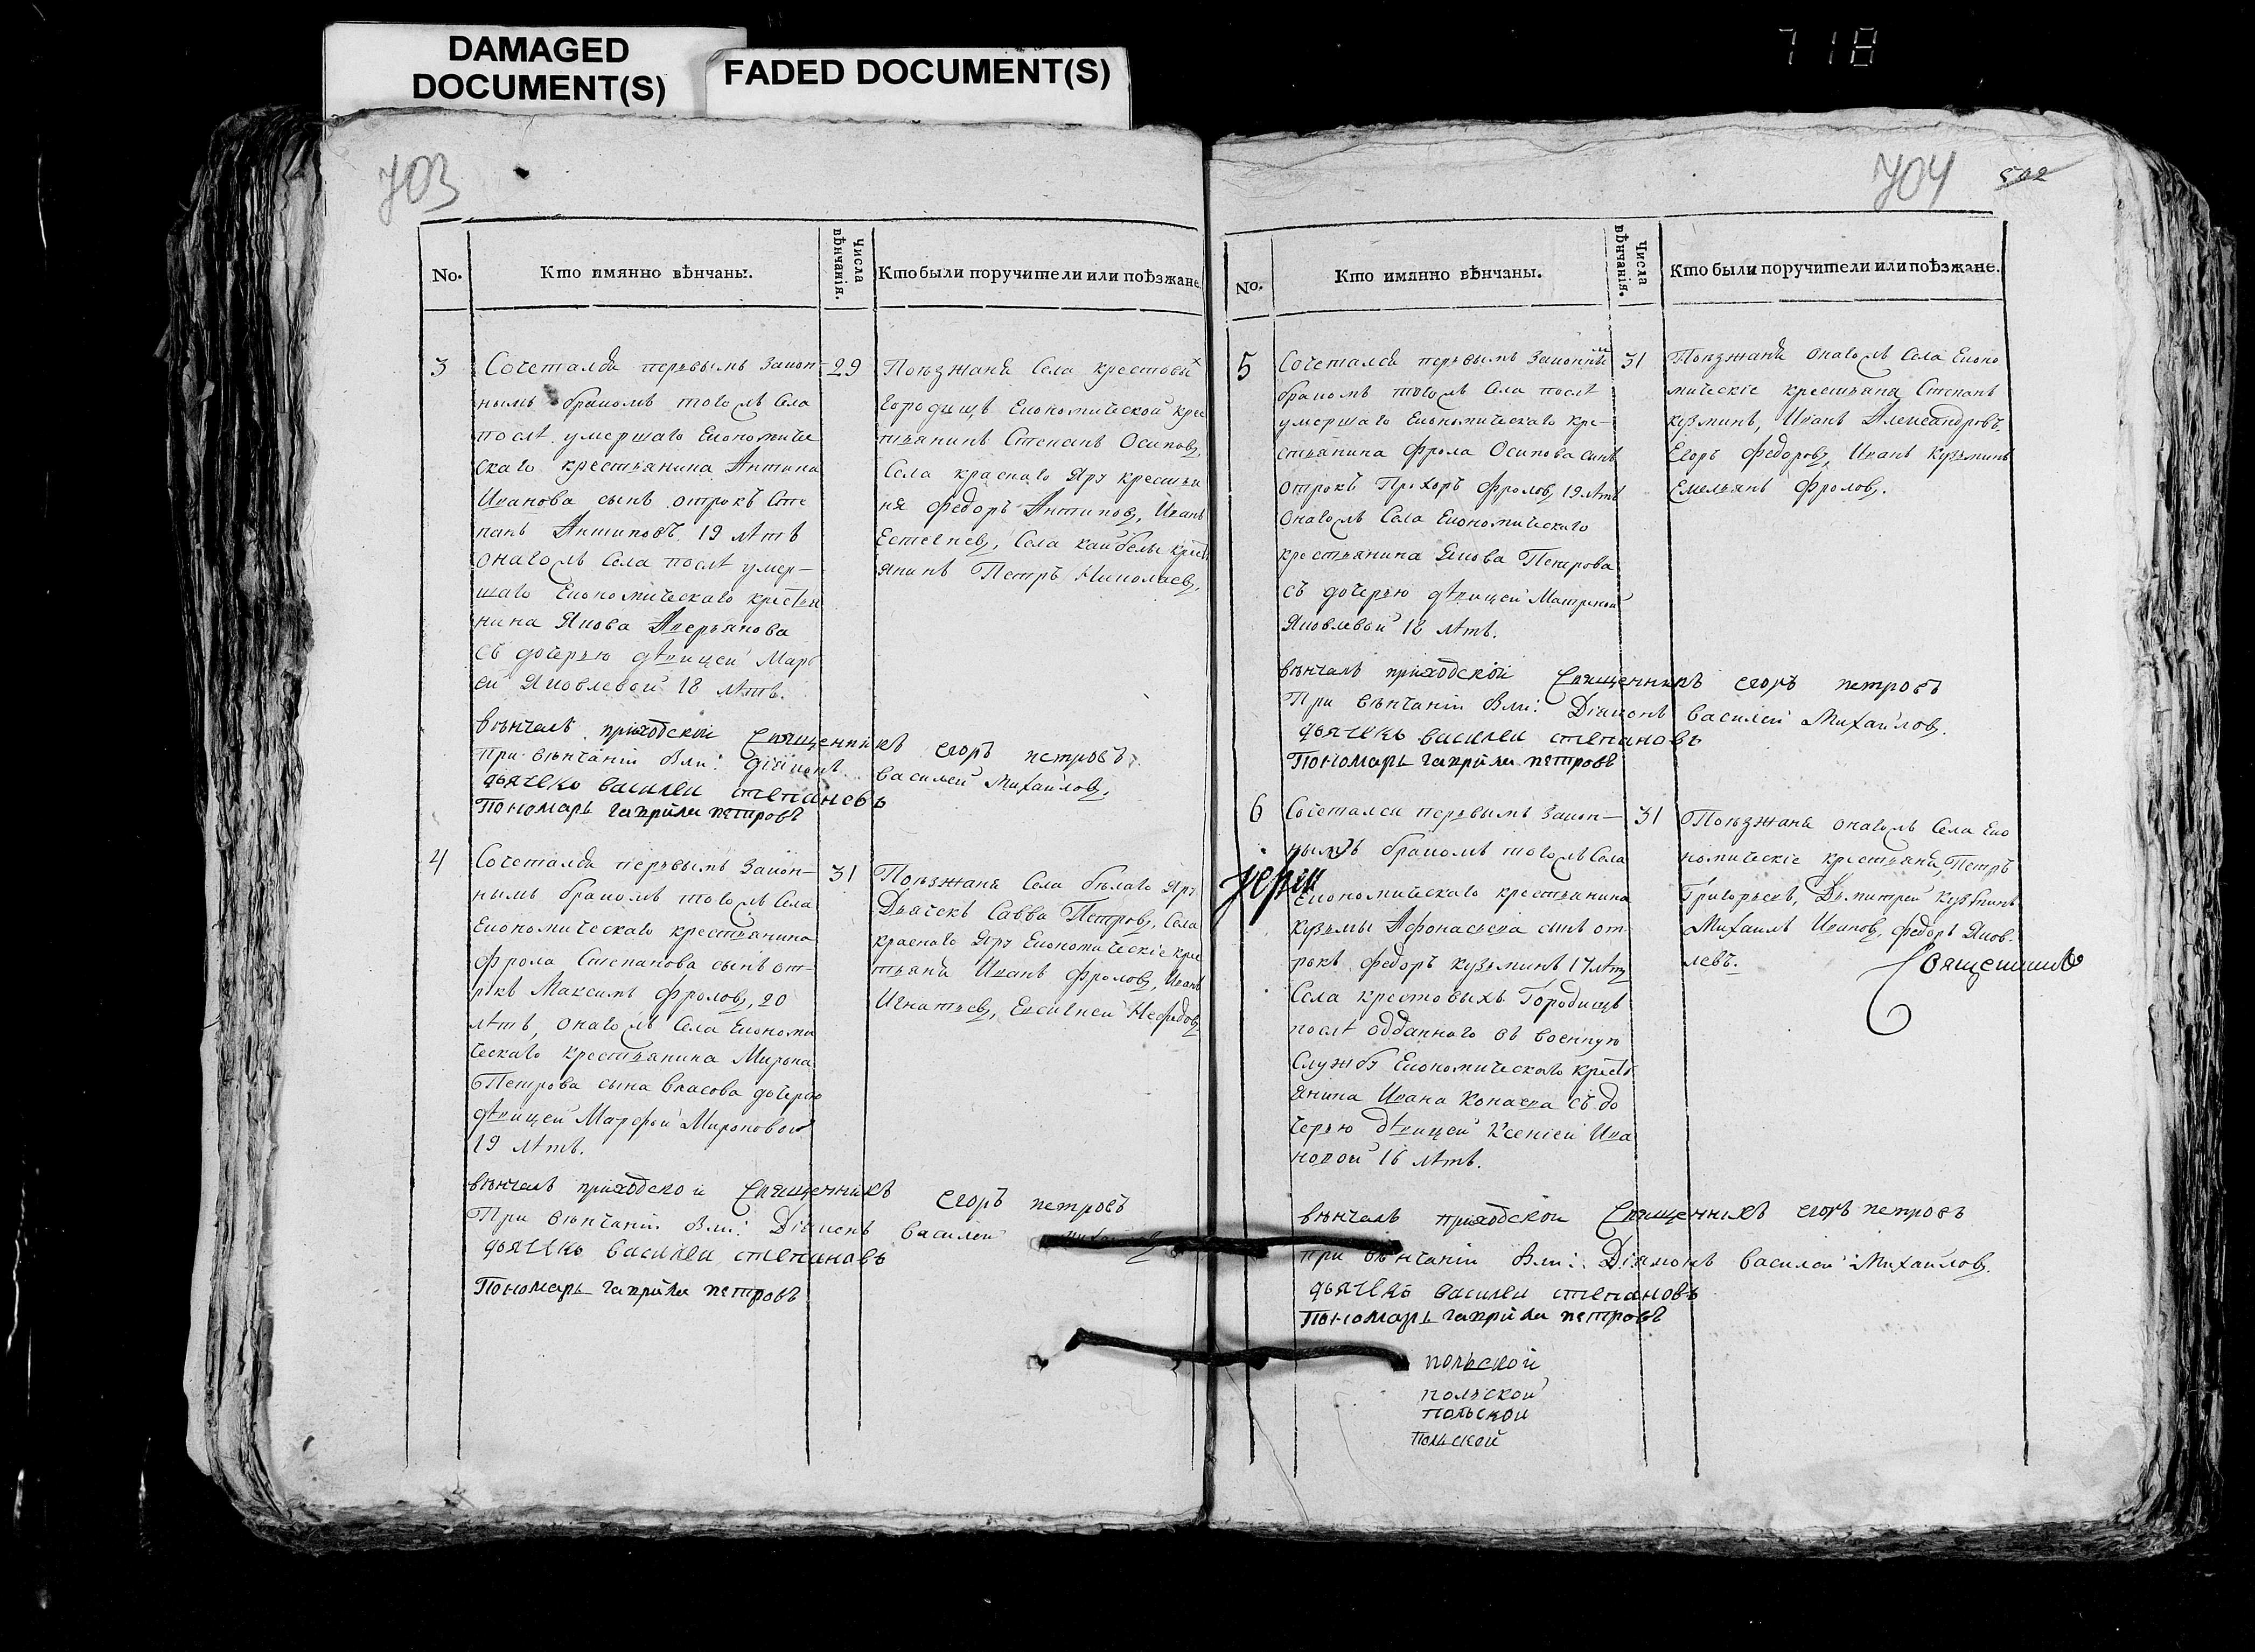 DAMAGED
DOCUMENT(S)
FADED DOCUMENT(S)
718
703
No.
Кто имянно вѣнчаны.
Числа
вѣнчанія.
Кто были поручители или поѣзжане.
3
Сочетался первымъ закон-
нымъ бракомъ того жъ Села
послѣ умершаго Економиче
скаго крестьянина Антипа
Иванова сынъ отрокъ Сте
панъ Антиповъ 19 лѣтъ
онаго жъ Села послѣ умер-
шаго Економическаго крестья
нина Якова Аверьянова
съ дочерью дѣвицей Марь
ей Яковлевой 18 лѣтъ.
29
Поѣзжаня Села крестовы х
городищъ Економической крес
тьянинъ Степанъ Осиповъ,
Села краснаго Яру крестья
ня Федоръ Антиповъ, Иванъ
Евсегнев, Села каибелы крест
янинъ Петръ Николаевъ,
вѣнчалъ приходскои Священникъ егоръ петровъ
при вѣнчаніи были: діаконъ василеи михаиловъ,
дьячекъ василеи степановъ
Пономарь гаврила петровъ
4
Сочетался первымъ закон-
нымъ бракомъ того жъ Села
Економическаго крестьянина
Фрола Степанова сынъ от-
рокъ Максимъ Фроловъ, 20
лѣтъ, онаго жъ Села Економи
ческаго крестьянина Мирона
Петрова сына власова дочерью
дѣвицей Марфой Мироновой
19 лѣтъ.
31
Поѣзжаня Села бѣлаго Яру
Дьячекъ Савва Петровъ, Села
краснаго Яру Економическіе крес
тьяня Иванъ Фроловъ, Иванъ
Игнатьевъ, Евсигнеи Нефидовъ
вѣнчалъ приходской Священникъ егоръ петровъ
При вѣнчаніи были: Діаконъ василеи
дьячекъ василеи степановъ
Пономарь гаврила петровъ
704
502
No.
Кто имянно вѣнчаны.
Числа
вѣнчанія.
Кто были поручители или поѣзжане.
5
Сочетался первымъ законны м
бракомъ того жъ Села послѣ
умершаго Економическаго кре-
стьянина Фрола Осипова сынъ
отрокъ Прохоръ Фроловъ 19 лѣтъ
онаго жъ Села Економическаго
крестьянина Якова Петрова
съ дочерью дѣвицей Матреной
Яковлевой 18 лѣтъ.
31
Поѣзжаня онаго жъ Села Еконо
мическіе крестьяня Степанъ
кузминъ, Иванъ Александровъ
Егоръ Федоровъ, Иванъ Кузьминъ
Емельянъ Фроловъ.
вѣнчалъ приходскои Священникъ егоръ петровъ
При вѣнчаніи были: Діаконъ василеи Михаиловъ.
дьячекъ василеи степановъ
Пономарь гаврила петровъ
6
Сочетался первымъ закон-
нымъ бракомъ того жъ Села
Економическаго крестьянина
кузьмы Афонасьева сынъ от-
рокъ Федоръ кузьминъ 17 лѣтъ
Села крестовыхъ Городищъ
послѣ одданного въ военную
Службу Економическаго крестъ
янина Ивана Конаева съ до
черью дѣвицей Ксеніей Ива
новой 16 лѣтъ.
31
Поѣзжаня онаго жъ Села Еко
номическіе крестьяня, Петръ
Григорьевъ, Дьмитреи Кузьминъ
Михаилъ Ивановъ, Федоръ Яков-
левъ.
іереи
Священникъ
вѣнчалъ приходскои Священникъ егоръ петровъ
при вѣнчаніи были: Діаконъ василеи Михаиловъ.
дьячекъ василеи степановъ
Пономарь гаврила петровъ
польской
польской
польской
польской